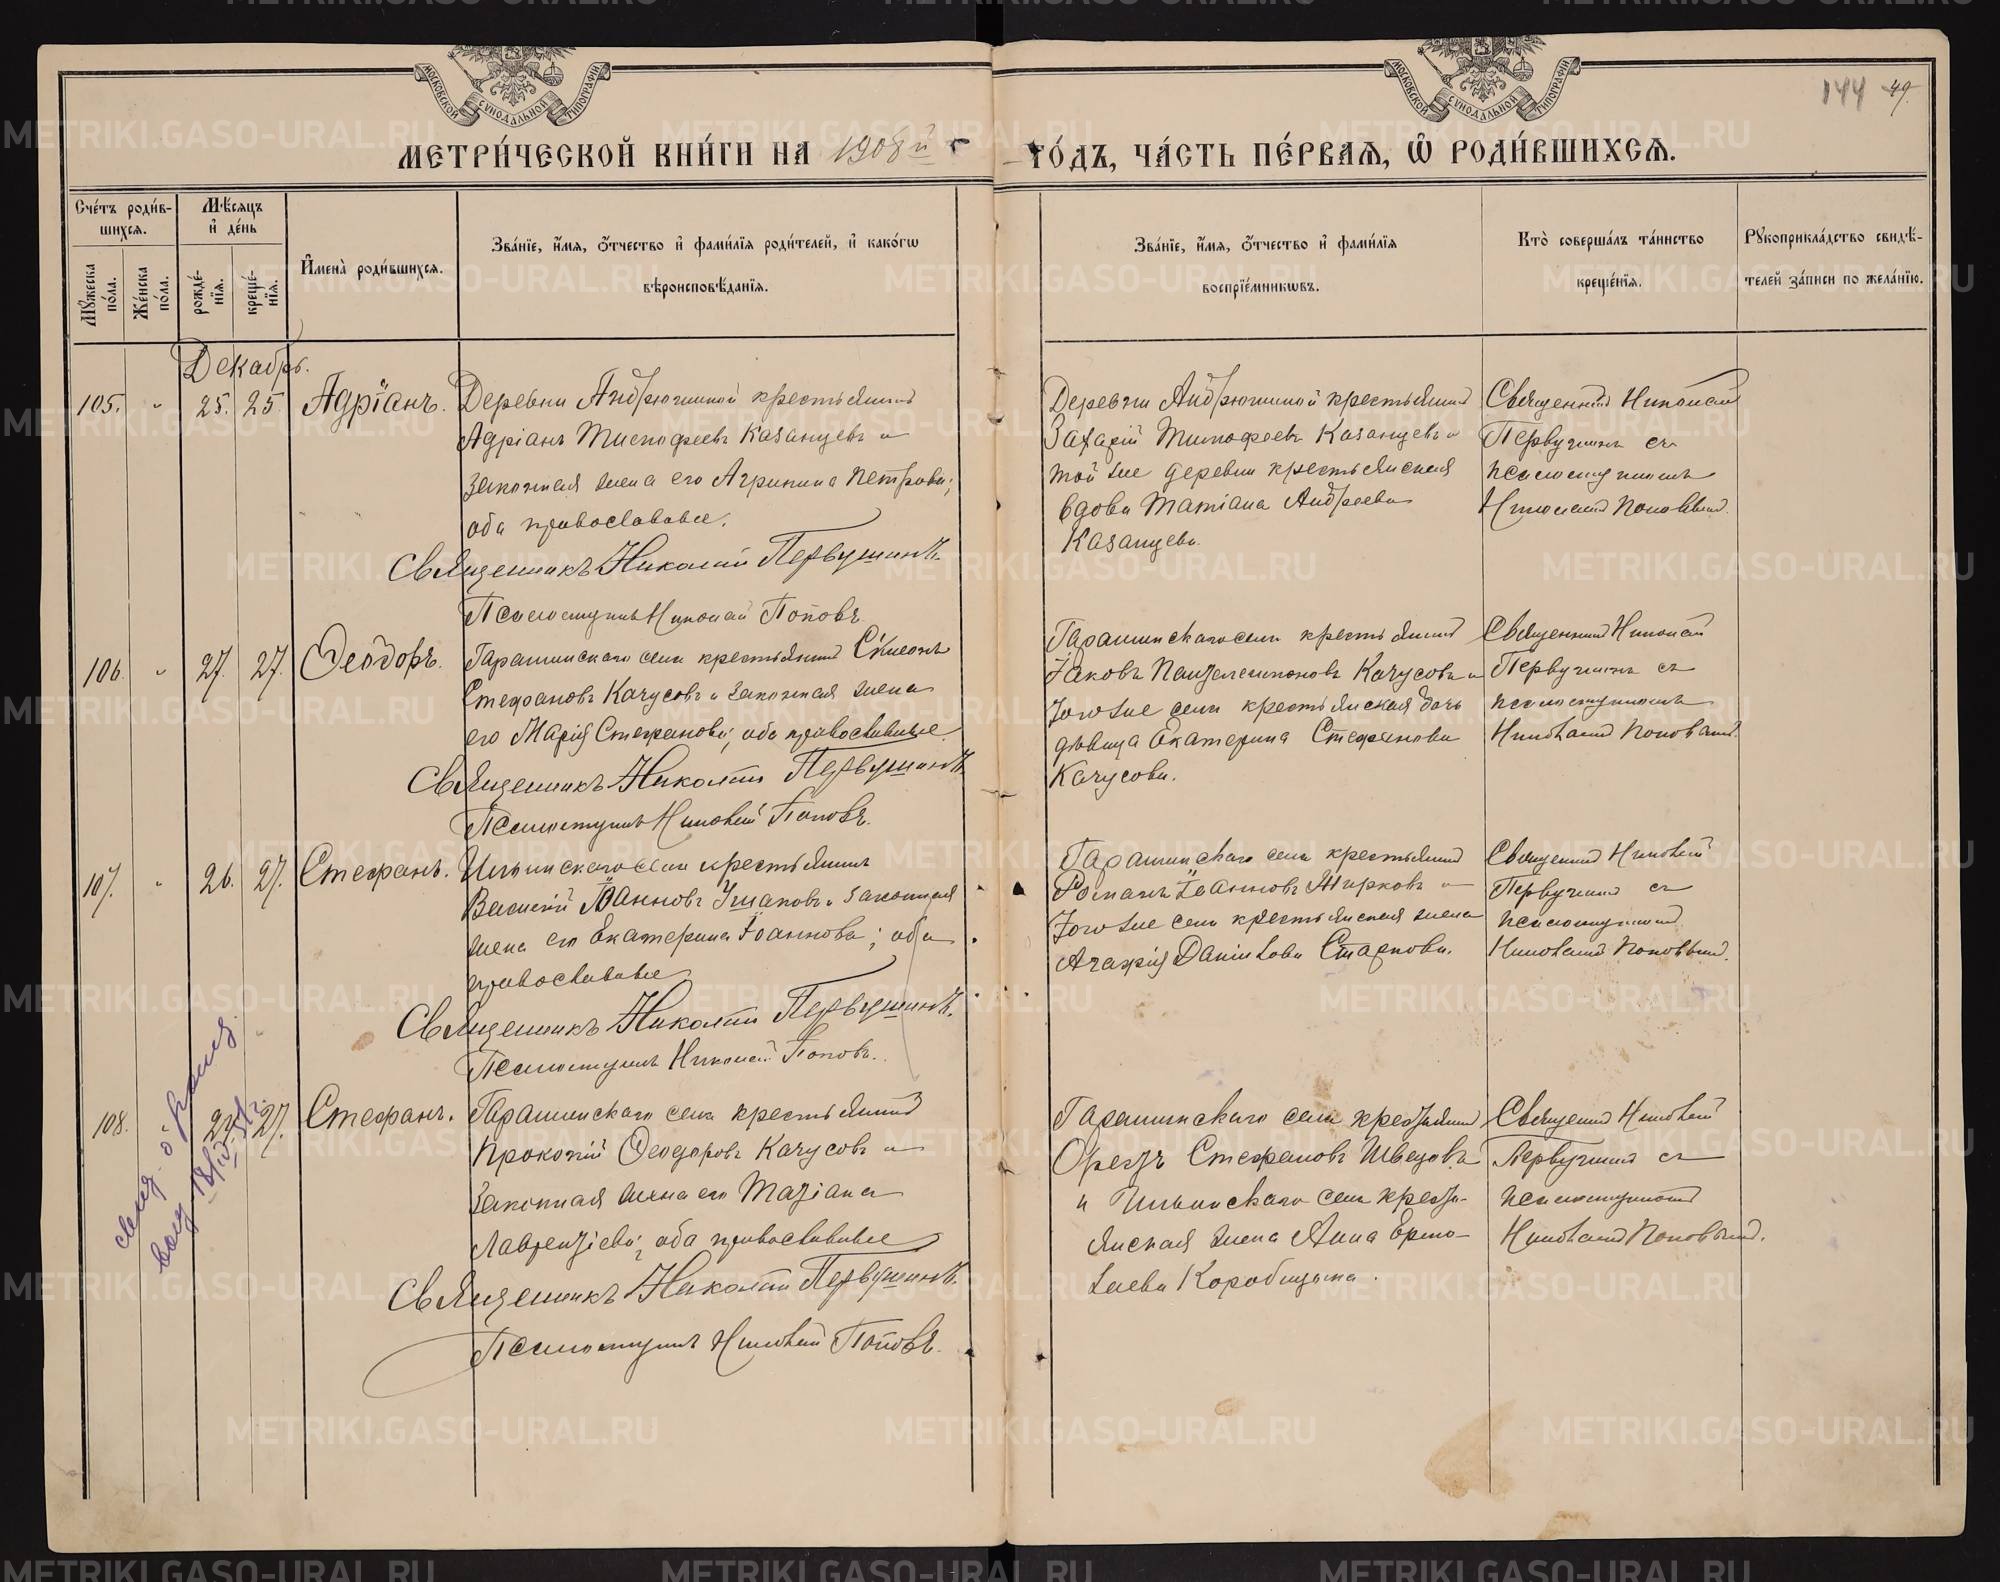 МОСКОВСКОЙ СѴНОДАЛЬНОЙ ТИПОГРАФІИ
МОСКОВСКОЙ СѴНОДАЛЬНОЙ ТИПОГРАФІИ
144 49.
МЕТРИ́ЧЕСКОЙ КНИ́ГИ НА 1908й г
ГО́ДЪ, ЧА́СТЬ ПЕ́РВАѦ, Ѽ РОДИ́ВШИХСѦ.
Сче́тъ роди́в-
шихсѧ.
Мꙋ́жеска по́ла.
Же́нска по́ла.
Мѣ́сѧцъ и҆ де́нь
рожде́-
нїѧ.
креще́-
нїѧ.
И҆мена̀ роди́вшихсѧ.
Зва́нїе, и҆́мѧ, ѻ҆́тчество и҆ фами́лїѧ роди́телей, и҆ како́гѡ
вѣроисповѣ́данїѧ.
Зва́нїе, и҆́мѧ, ѻ҆́тчество и҆ фами́лїѧ
воспрїе́мникѡвъ.
Кто̀ соверша́лъ та́инство
креще́нїѧ.
Рꙋкоприкла́дство свидѣ́-
телей за́писи по жела́нїю.
Декабрь.
105. " 25. 25. Адріанъ.
Деревни Андрюшиной крестьянинъ
Адріанъ Тимофеевъ Казанцевъ и
законная жена его Агрипина Петрова;
оба православные.
Священникъ Николай Первушинъ.
Псаломщикъ Николай Поповъ.
Деревни Андрюшиной крестьянинъ
Захарій Тимофеевъ Казанцевъ и
той же деревни крестьянская
вдова Татіана Андреева
Казанцева.
Священникъ Николай
Первушинъ съ
псаломщикомъ
Николаемъ Поповымъ.
106. " 27. 27. Ѳеодоръ.
Гарашинскаго села крестьянинъ Сѵмеонъ
Стефановъ Качусовъ и законная жена
его Марія Стефанова; оба православные.
Священникъ Николай Первушинъ.
Псаломщикъ Николай Поповъ.
Гарашинскаго села крестьянинъ
Іаковъ Пантелеимоновъ Качусовъ и
того же села крестьянская дочь
дѣвица Екатерина Стефанова
Качусова.
Священникъ Николай
Первушинъ съ
псаломщикомъ
Николаемъ Поповымъ.
107. " 26. 27. Стефанъ.
Ильинскаго села крестьянинъ
Василій Іоанновъ Ушаковъ и законная
жена его Екатерина Іоаннова; оба
православные
Священникъ Николай Первушинъ.
Псаломщикъ Николай Поповъ.
Гарашинскаго села крестьянинъ
Романъ Іоанновъ Жирковъ и
того же села крестьянская жена
Агафія Даніилова Старкова.
Священникъ Николай
Первушинъ съ
псаломщикомъ
Николаемъ Поповымъ.
108. 27. 27. Стефанъ.
Гарашинскаго села крестьянинъ
Прокопій Ѳеодоровъ Качусовъ и
законная жена его Татіана
Лаврентіева; оба православные
Священникъ Николай Первушинъ.
Псаломщикъ Николай Поповъ.
Гарашинскаго села крестьянинъ
Орестъ Стефановъ Швецовъ
и Ильинскаго села крестья-
янская жена Анна Ермо-
лаева Коробицына.
Священникъ Николай
Первушинъ съ
псаломщикомъ
Николаемъ Поповымъ.
METRIKI.GASO-URAL.RU